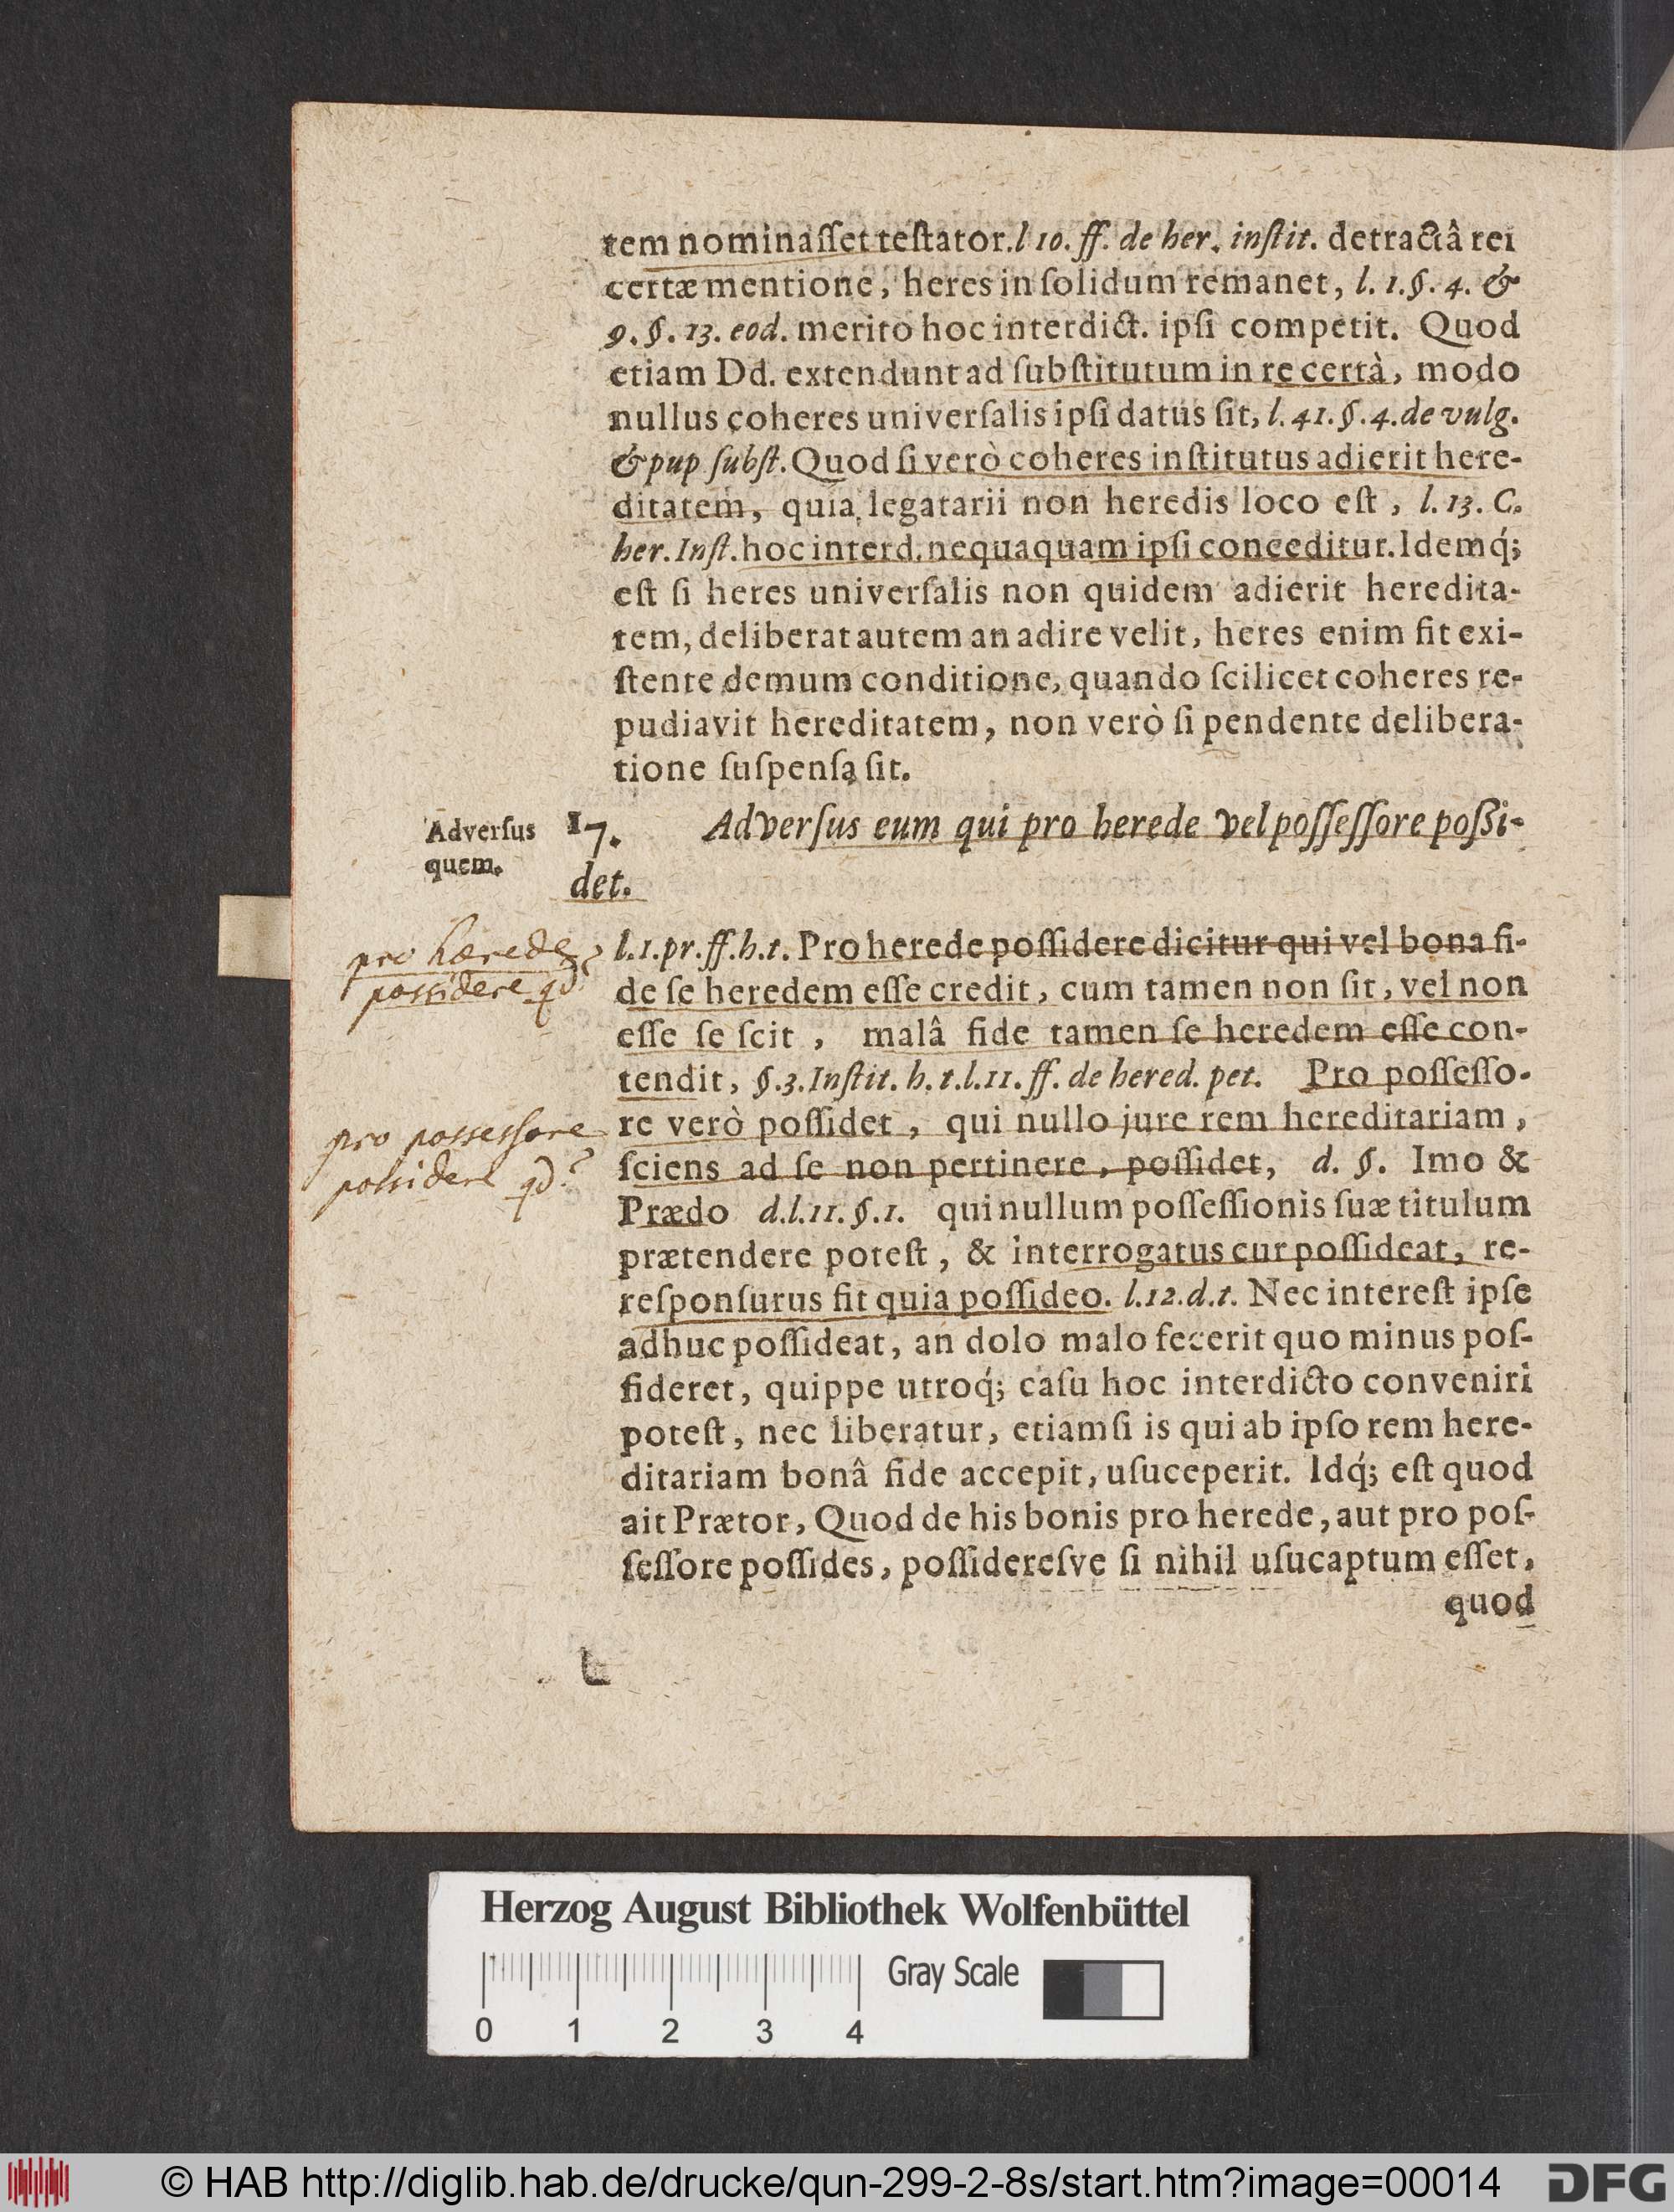 tem nominaſſet teſtator. l 10. ff. de her. inſtit. detractâ rei
certæ mentione, heres in ſolidum remanet, l. 1. §. 4. &
9. §. 13. eod. merito hoc interdict. ipſi competit. Quod
etiam Dd. extendunt ad ſubſtitutum in re certà, modo
nullus coheres univerſalis ipſi datus ſit, l. 41. §. 4. de vulg.
& pup ſubſt. Quod ſi verò coheres inſtitutus adierit here-
ditatem, quia legatarii non heredis loco eſt, l. 13. C.
her. Inſt. hoc interd. nequaquam ipſi conceditur. Idemq́;
eſt ſi heres univerſalis non quidem adierit heredita-
tem, deliberat autem an adire velit, heres enim fit exi-
ſtente demum conditione, quando ſcilicet coheres re-
pudiavit hereditatem, non verò ſi pendente delibera-
tione ſuſpenſa ſit.
Adverſus
quem.
17. Adverſus eum qui pro herede vel poſſeſſore poßi-
det.
pro hærede
possidere qd
l. 1. pr. ff. h. t. Pro herede poſſidere dicitur qui vel bona fi-
de ſe heredem eſſe credit, cum tamen non ſit, vel non
eſſe ſe ſcit, malâ fide tamen ſe heredem eſſe con-
tendit, §. 3. Inſtit. h. t. l. 11. ff. de hered. pet. Pro poſſeſſo-
pro possessore
possidere qd?
re verò poſſidet, qui nullo jure rem hereditariam,
ſciens ad ſe non pertinere, poſſidet, d. §. Imo &
Prædo d. l. 11. §. 1. qui nullum poſſeſſionis ſuæ titulum
prætendere poteſt, & interrogatus cur poſſideat, re-
reſponſurus ſit quia poſſideo. l. 12. d. t. Nec intereſt ipſe
adhuc poſſideat, an dolo malo fecerit quo minus poſ-
ſideret, quippe utroq́; caſu hoc interdicto conveniri
poteſt, nec liberatur, etiamſi is qui ab ipſo rem here-
ditariam bonâ fide accepit, uſuceperit. Idq́; eſt quod
ait Prætor, Quod de his bonis pro herede, aut pro poſ-
ſeſſore poſſides, poſſidereſve ſi nihil uſucaptum eſſet,
quod
Herzog August Bibliothek Wolfenbüttel
Gray Scale
0 1 2 3 4
© HAB http://diglib.hab.de/drucke/qun-299-2-8s/start.htm?image=00014
DFG